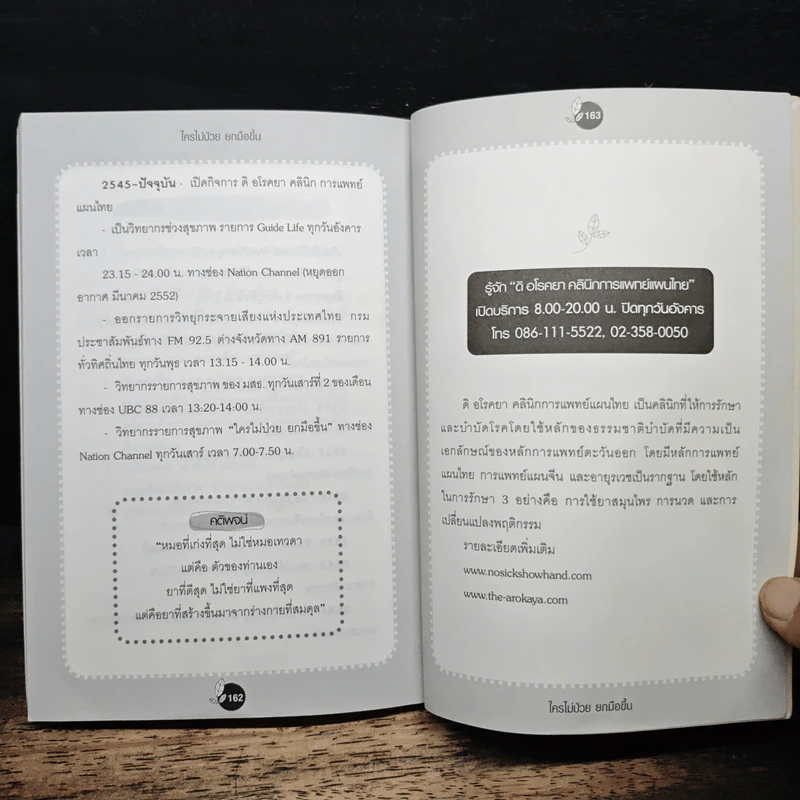 ใครไม่ป่วย ยกมือขึ้น
2545-ปัจจุบัน - เปิดกิจการ ดิ อโรคยา คลินิก การแพทย์
แผนไทย
- เป็นวิทยากรช่วงสุขภาพ รายการ Guide Life ทุกวันอังคาร
เวลา
23.15 - 24.00 น. ทางช่อง Nation Channel (หยุดออก
อากาศ มีนาคม 2552)
- ออกรายการวิทยุกระจายเสียงแห่งประเทศไทย กรม
ประชาสัมพันธ์ทาง FM 92.5 ต่างจังหวัดทาง AM 891 รายการ
ทั่วทิศถิ่นไทย ทุกวันพุธ เวลา 13.15 - 14.00 น.
- วิทยากรรายการสุขภาพ ของ มสธ. ทุกวันเสาร์ที่ 2 ของเดือน
ทางช่อง UBC 88 เวลา 13:20-14:00 น.
- วิทยากรรายการสุขภาพ "ใครไม่ป่วย ยกมือขึ้น" ทางช่อง
Nation Channel ทุกวันเสาร์ เวลา 7.00-7.50 น.
คติพจน์
"หมอที่เก่งที่สุด ไม่ใช่หมอเทวดา
แต่คือ ตัวของท่านเอง
ยาที่ดีสุด ไม่ใช่ยาที่แพงที่สุด
แต่คือยาที่สร้างขึ้นมาจากร่างกายที่สมดุล"
162
163
รู้จัก "ดิ อโรคยา คลินิกการแพทย์แผนไทย"
เปิดบริการ 8.00-20.00 น. ปิดทุกวันอังคาร
โทร 086-111-5522, 02-358-0050
ดิ อโรคยา คลินิกการแพทย์แผนไทย เป็นคลินิกที่ให้การรักษา
และบำบัดโรคโดยใช้หลักของธรรมชาติบำบัดที่มีความเป็น
เอกลักษณ์ของหลักการแพทย์ตะวันออก โดยมีหลักการแพทย์
แผนไทย การแพทย์แผนจีน และอายุรเวชเป็นรากฐาน โดยใช้หลัก
ในการรักษา 3 อย่างคือ การใช้ยาสมุนไพร การนวด และการ
เปลี่ยนแปลงพฤติกรรม
รายละเอียดเพิ่มเติม
www.nosickshowhand.com
www.the-arokaya.com
ใครไม่ป่วย ยกมือขึ้น